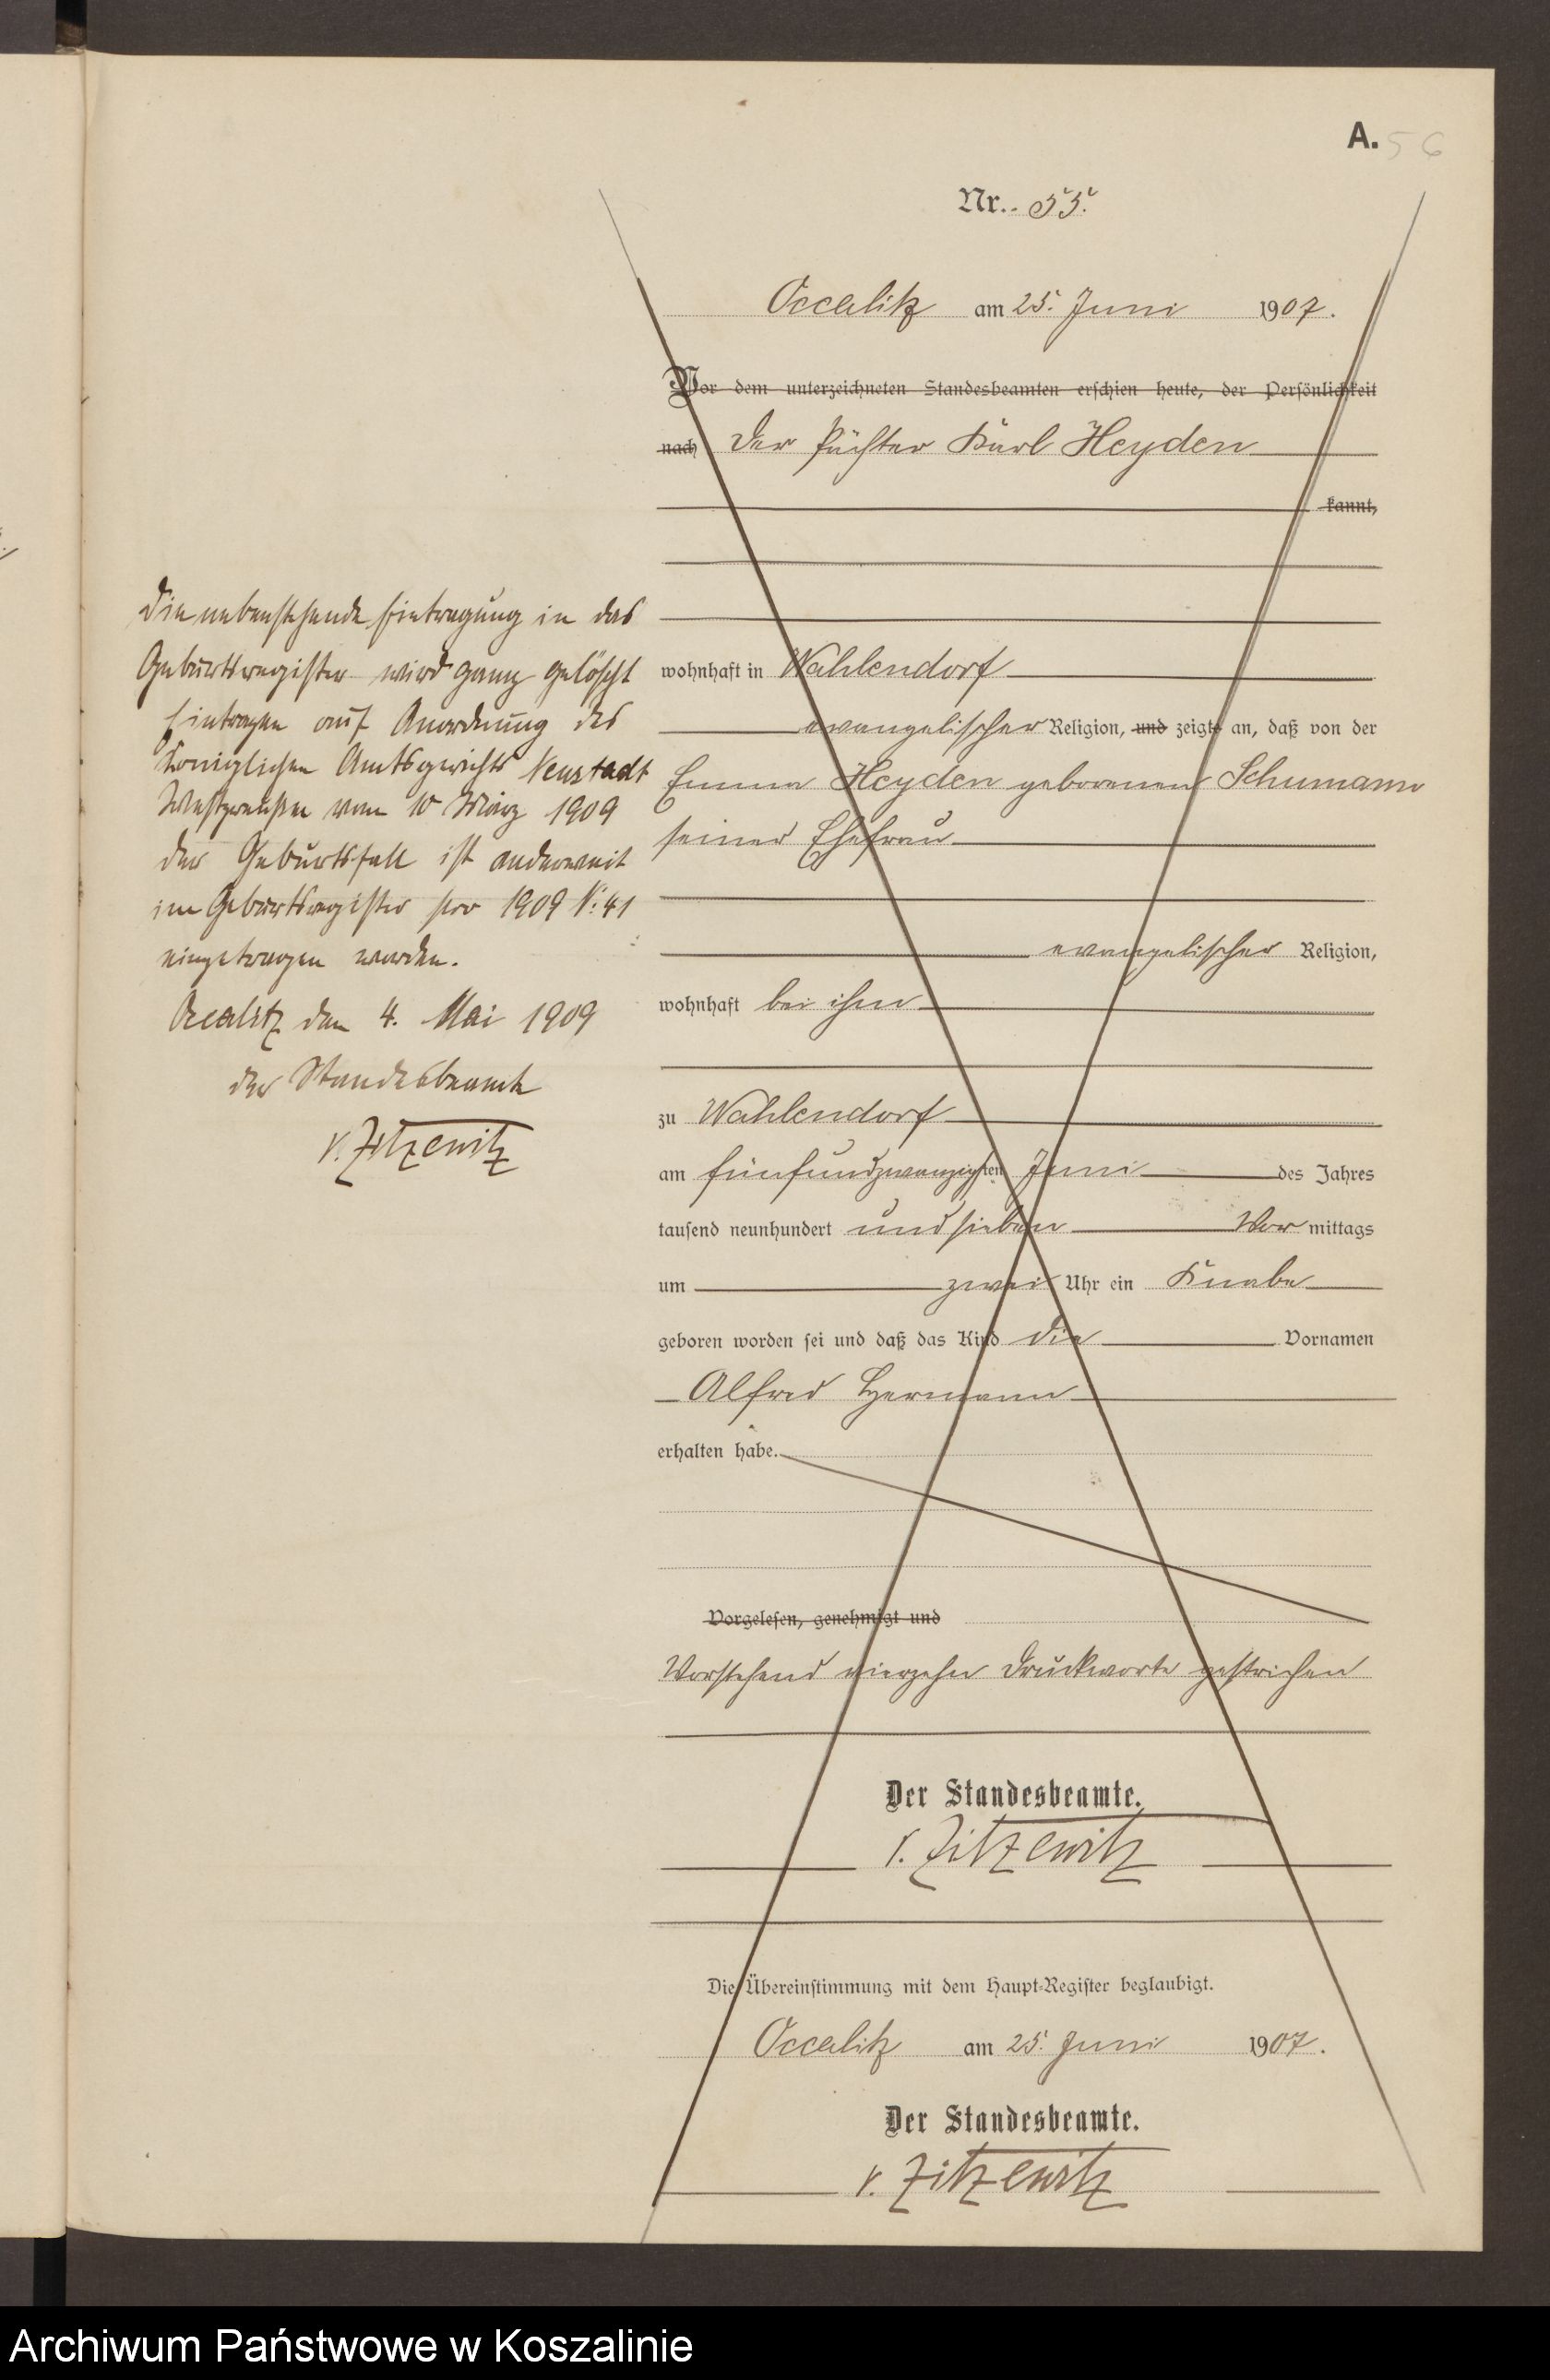 A. 56
Nr. 55.
Occalitz am 25. Juni 1907.
Vor dem unterzeichneten Standesbeamten erschien heute, der Persönlichkeit
nach der Pächter Karl Heyden
kannt,
wohnhaft in Wahlendorf
evangelischer Religion, und zeigte an, daß von der
Emma Heyden geborenen Schumann
seiner Ehefrau
evangelischer Religion,
wohnhaft bei ihm
zu Wahlendorf
am fünfundzwanzigsten Juni des Jahres
tausend neunhundert und sieben Vormittags
um zwei Uhr ein Knabe
geboren worden sei und daß das Kind die Vornamen
Alfred Hermann
erhalten habe.
Vorgelesen, genehmigt und
Vorstehend vierzehn Druckworte gestrichen
Der Standesbeamte.
v. Zitzewitz
Die Übereinstimmung mit dem Haupt-Register beglaubigt.
Occalitz am 25. Juni 1907.
Der Standesbeamte.
v. Zitzewitz
Die nebenstehende Eintragung in das
Geburtsregister wird ganz gelöscht
Eintragen auf Anordnung des
Königlichen Amtsgerichts Neustadt
Westpreußen vom 10 März 1909
der Geburtsfall ist anderweit
im Geburtsregister pro 1909 N: 41
eingetragen worden.
Occalitz den 4. Mai 1909
der Standesbeamte
v. Zitzewitz
Archiwum Państwowe w Koszalinie